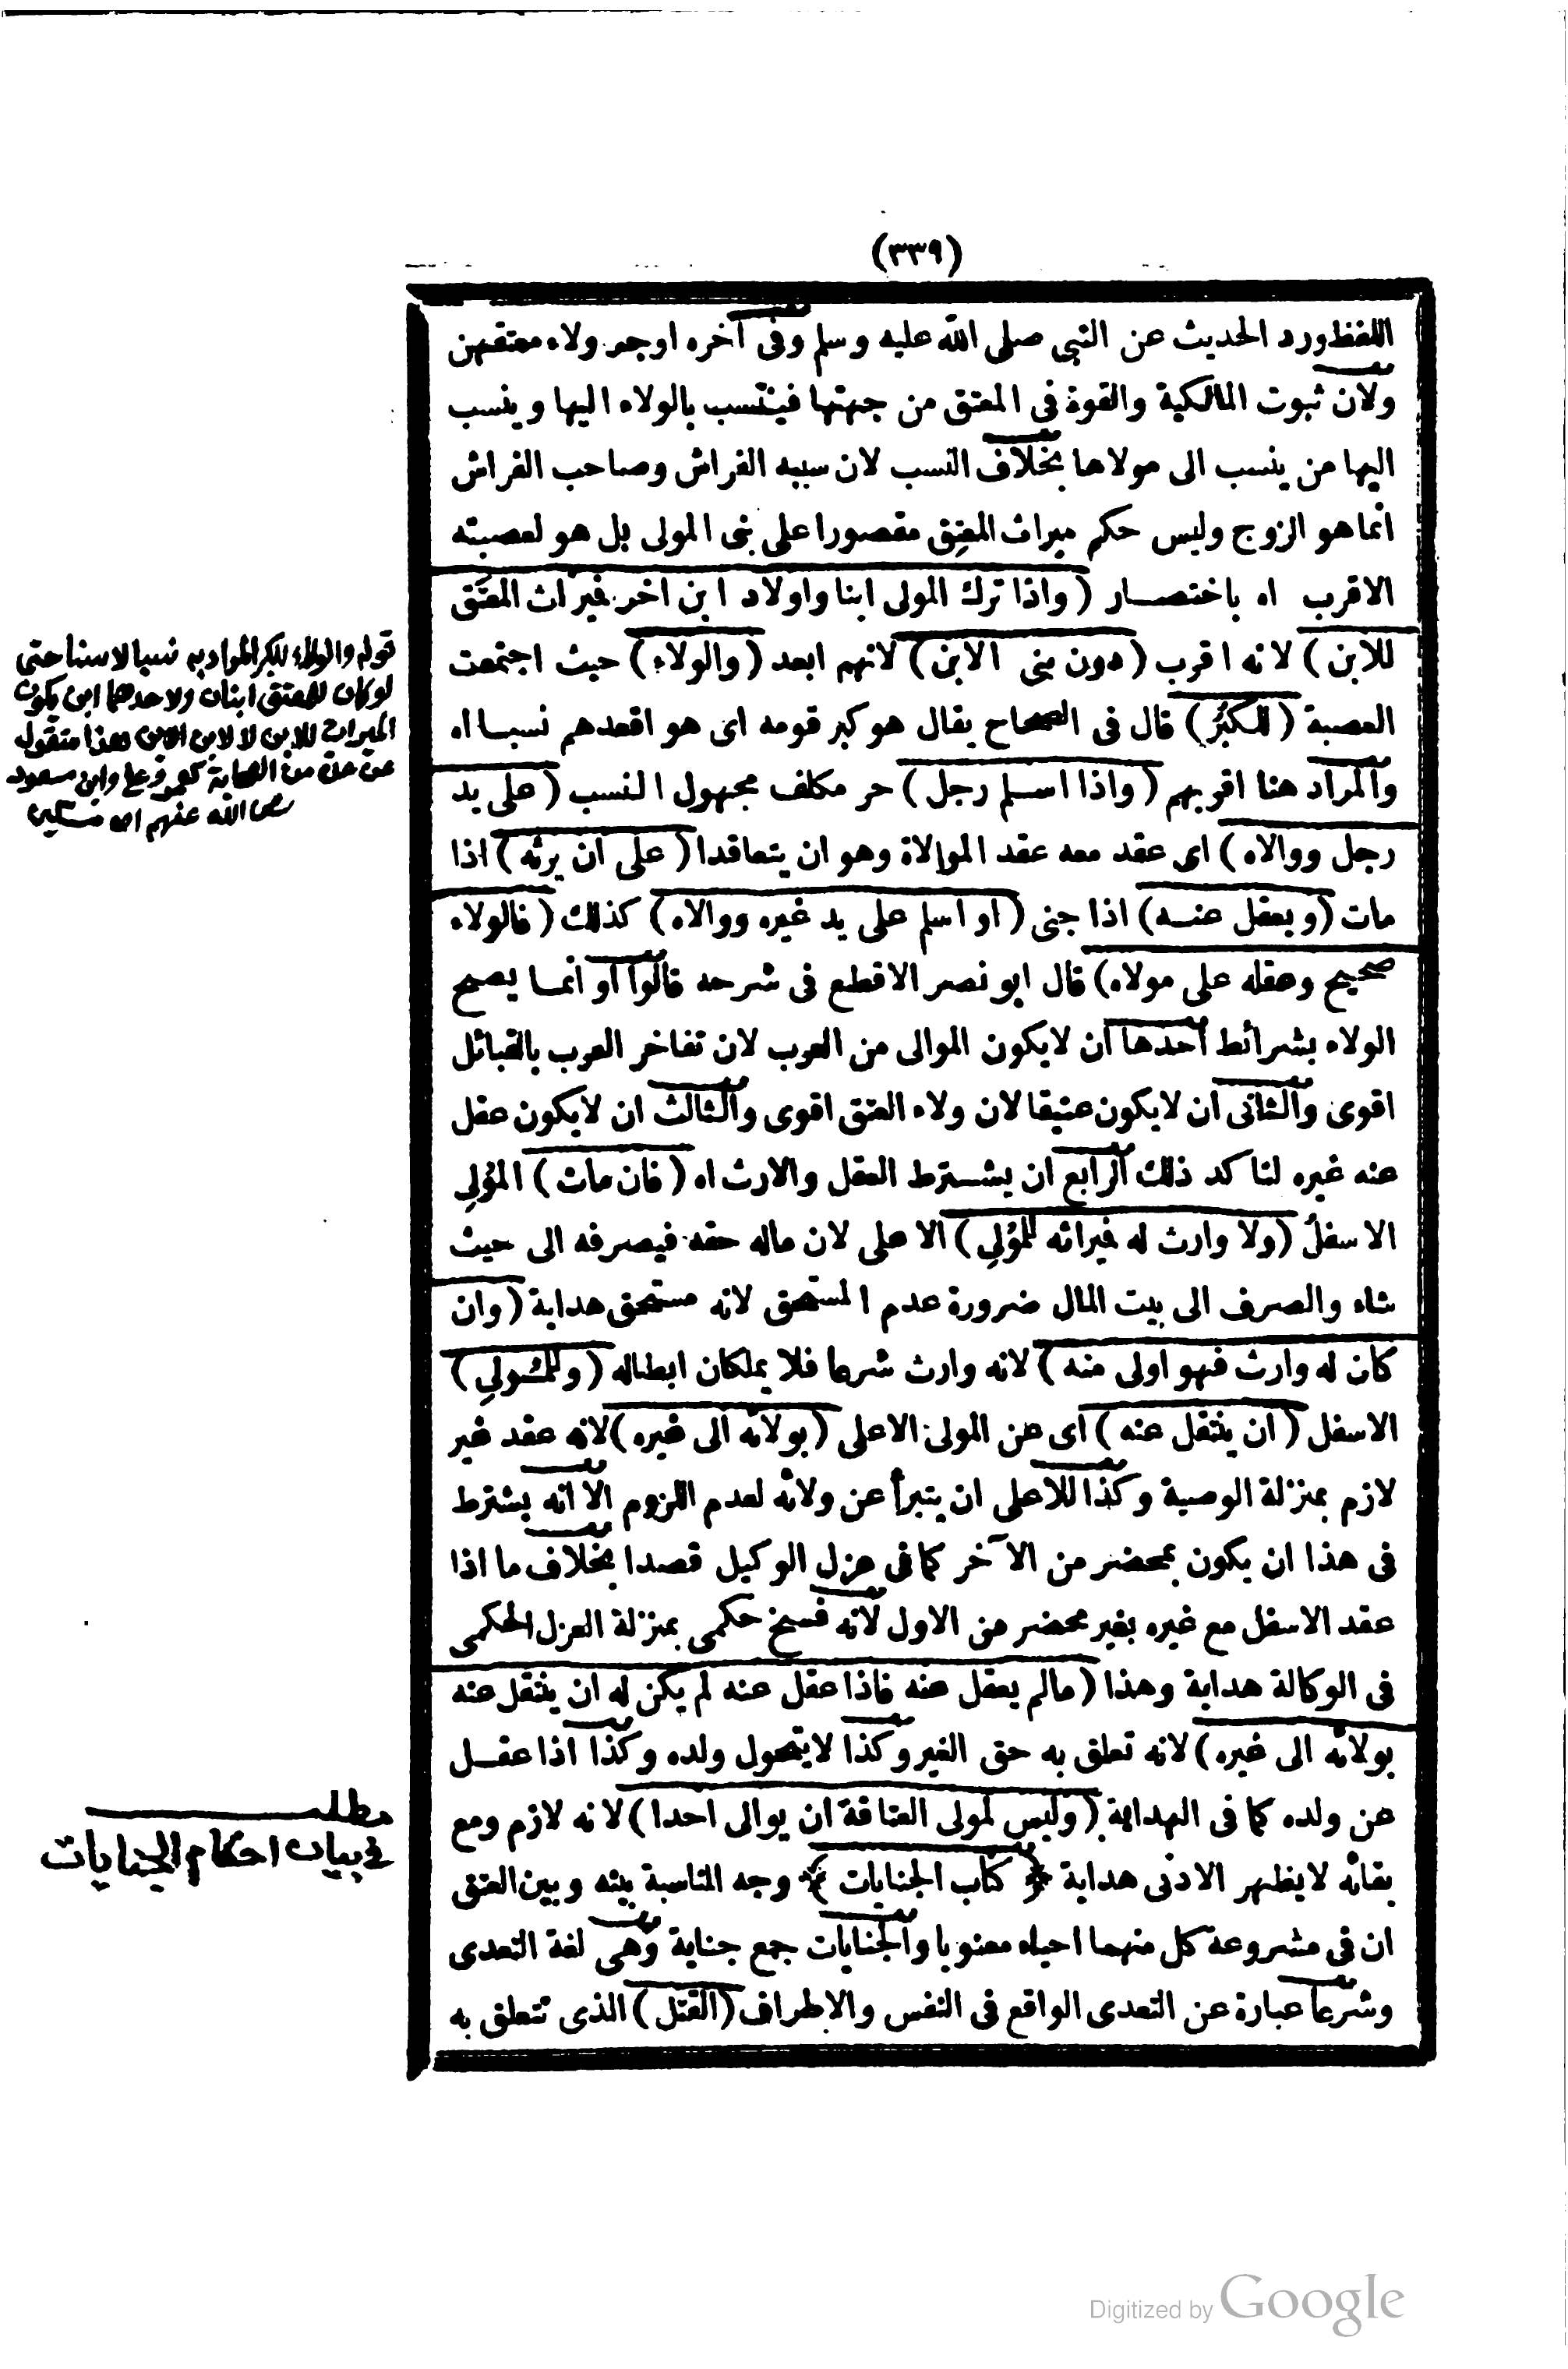 (٣٣٩)
اللفظ ورد الحديث عن النبى صلى الله عليه وسلم وفى آخره اوجر ولاء معتقهن
ولان ثبوت المالكية والقوة فى المعتق من جهتها فينتسب بالولاء اليها وينسب
اليها من ينسب الى مولاها بخلاف النسب لان سببه الفراش وصاحب الفراش
انما هو الزوج وليس حكم ميراث المعتِق مقصورا على بنى المولى بل هو لعصبته
الاقرب اه باختصار (واذا ترك المولى ابنا واولاد ابن اخر فميراث المعتَق
للابن) لانه اقرب (دون بنى الابن) لانهم ابعد (والولاء) حيث اجتمعت
العصبة (للكُبْر) قال فى الصحاح يقال هو كبر قومه اى هو اقعدهم نسبا اه
والمراد هنا اقربهم (واذا اسلم رجل) حر مكلف مجهول النسب (على يد
رجل ووالاه) اى عقد معه عقد الموالاة وهو ان يتعاقدا (على ان يرثه) اذا
مات (ويعقل عنه) اذا جنى (او اسلم على يد غيره ووالاه) كذلك (فالولاء
صحيح وعقله على مولاه) قال ابو نصر الاقطع فى شرحه قالوا او انما يصح
الولاء بشرائط احدها ان لايكون الموالى من العرب لان تفاخر العرب بالقبائل
اقوى والثانى ان لايكون عتيقا لان ولاء العتق اقوى والثالث ان لايكون عقل
عنه غيره لتاكد ذلك الرابع ان يشترط العقل والارث اه (فان مات) المُوْلِى
الاسفل (ولا وارث له فميراثه للمُوْلِى) الاعلى لان ماله حقه فيصرفه الى حيث
شاء والصرف الى بيت المال ضرورة عدم المستحق لانه مستحق هداية (وان
كان له وارث فهو اولى منه) لانه وارث شرعا فلا يملكان ابطاله (وللمُولِى)
الاسفل (ان ينتقل عنه) اى عن المولى الاعلى (بولائه الى غيره) لانه عقد غير
لازم بمنزلة الوصية وكذا للاعلى ان يتبرأ عن ولائه لعدم اللزوم الا انه يشترط
فى هذا ان يكون بمحضر من الآخر كما فى عزل الوكيل قصدا بخلاف ما اذا
عقد الاسفل مع غيره بغير محضر من الاول لانه فسخ حكمى بمنزلة العزل الحكمى
فى الوكالة هداية وهذا (مالم يعقل عنه فاذا عقل عنه لم يكن له ان ينتقل عنه
بولائه الى غيره) لانه تعلق به حق الغير وكذا لايتحول ولده وكذا اذا عقل
عن ولده كما فى الهداية (وليس لمولى العتاقة ان يوالى احدا) لانه لازم ومع
بقائه لايظهر الادنى هداية ﴿ كتاب الجنايات ﴾ وجه المناسبة بينه وبين العتق
ان فى مشروعة كل منهما احياء معنويا والجنايات جمع جناية وهى لغة التعدى
وشرعا عبارة عن التعدى الواقع فى النفس والاطراف (القتل) الذى تتعلق به
قوله والولاء للكبر المراد به نسبا لا سنا حتى
لو كان للمعتق ابنان ولاحدهما ابن يكون
الميراث للابن لا لابن الابن وهذا منقول
عن عدة من الصحابة كعمر وعلى وابن مسعود
رضى الله عنهم اه مسكين
مطلب
فى بيان احكام الجنايات
Digitized by Google